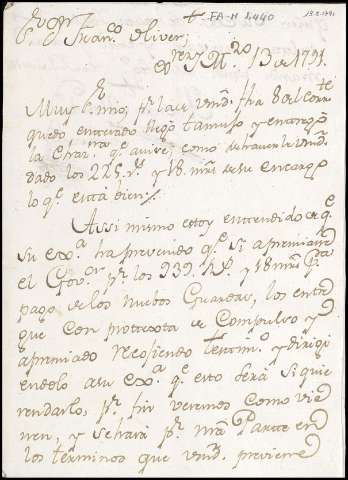 + FA-H 1.440
13-2-1791
Sr. Dn. Franco. Oliver;
13 de 1791.
Muy Sr. mio; pr. la de vmd. fha 8 del corrte.
quedo entendido llegó tamuso y entregó
la que avise, como
dado los 225 rs. y 18 mrs. de su encargo
lo qe. está bien.
Assi mismo estoy entendido de qe.
su exa. ha prevenido qe. si apremiare
el Govor. pr. los 239 rs. y 18 mrs. pa.
pago de los nuebos Guardas, los entre
gue con protexta de Compulso y
apremiado recojiendo testimo. y dirigi
endolo a su exa. qe. esto será si quie
rendarlo, pr. fin veremos como vie
nen, y se hará pr. mi Parte en
los terminos que vmd. previene